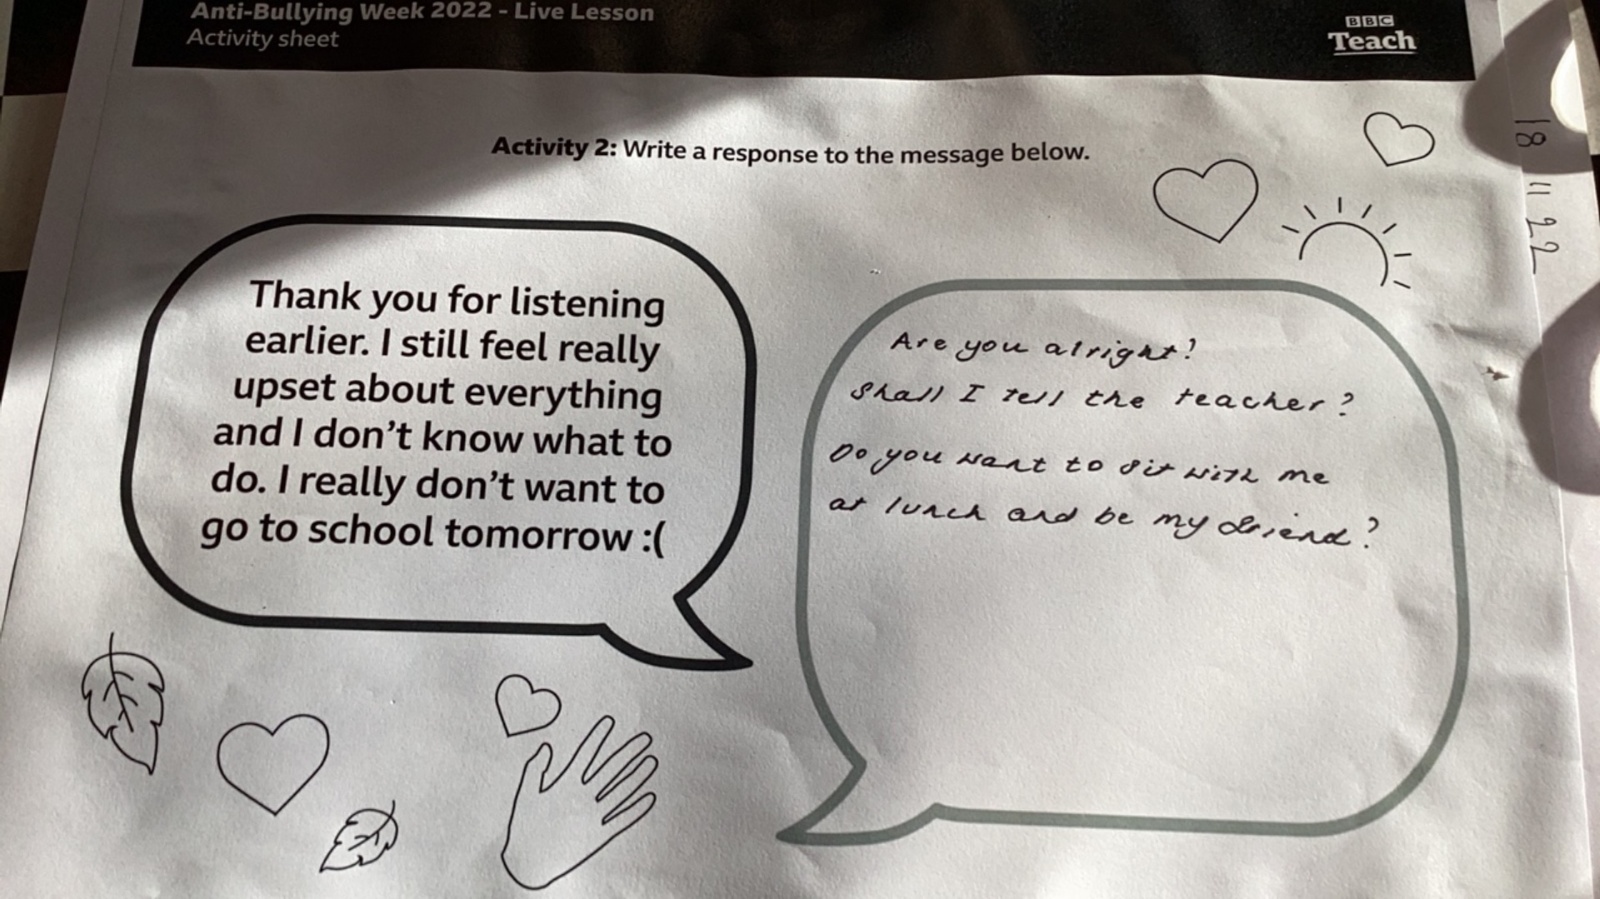 Anti-Bullying Week 2022 - Live Lesson
Activity sheet
BBC
Teach
Activity 2: Write a response to the message below.
18 11 22
Thank you for listening
earlier. I still feel really
upset about everything
and I don't know what to
do. I really don't want to
go to school tomorrow :(
Are you alright?
Shall I tell the teacher?
Do you want to sit with me
at lunch and be my friend?